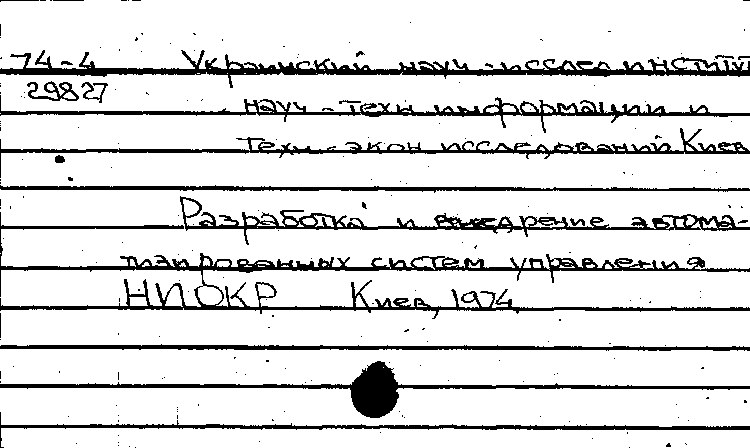 74-4 Украинский науч.-исслед. институт
29827
науч.-техн. информации и
техн.-экон. исследований. Киев
Разработка и внедрение автома-
тизированных систем управления
НИОКР Киев, 1974.